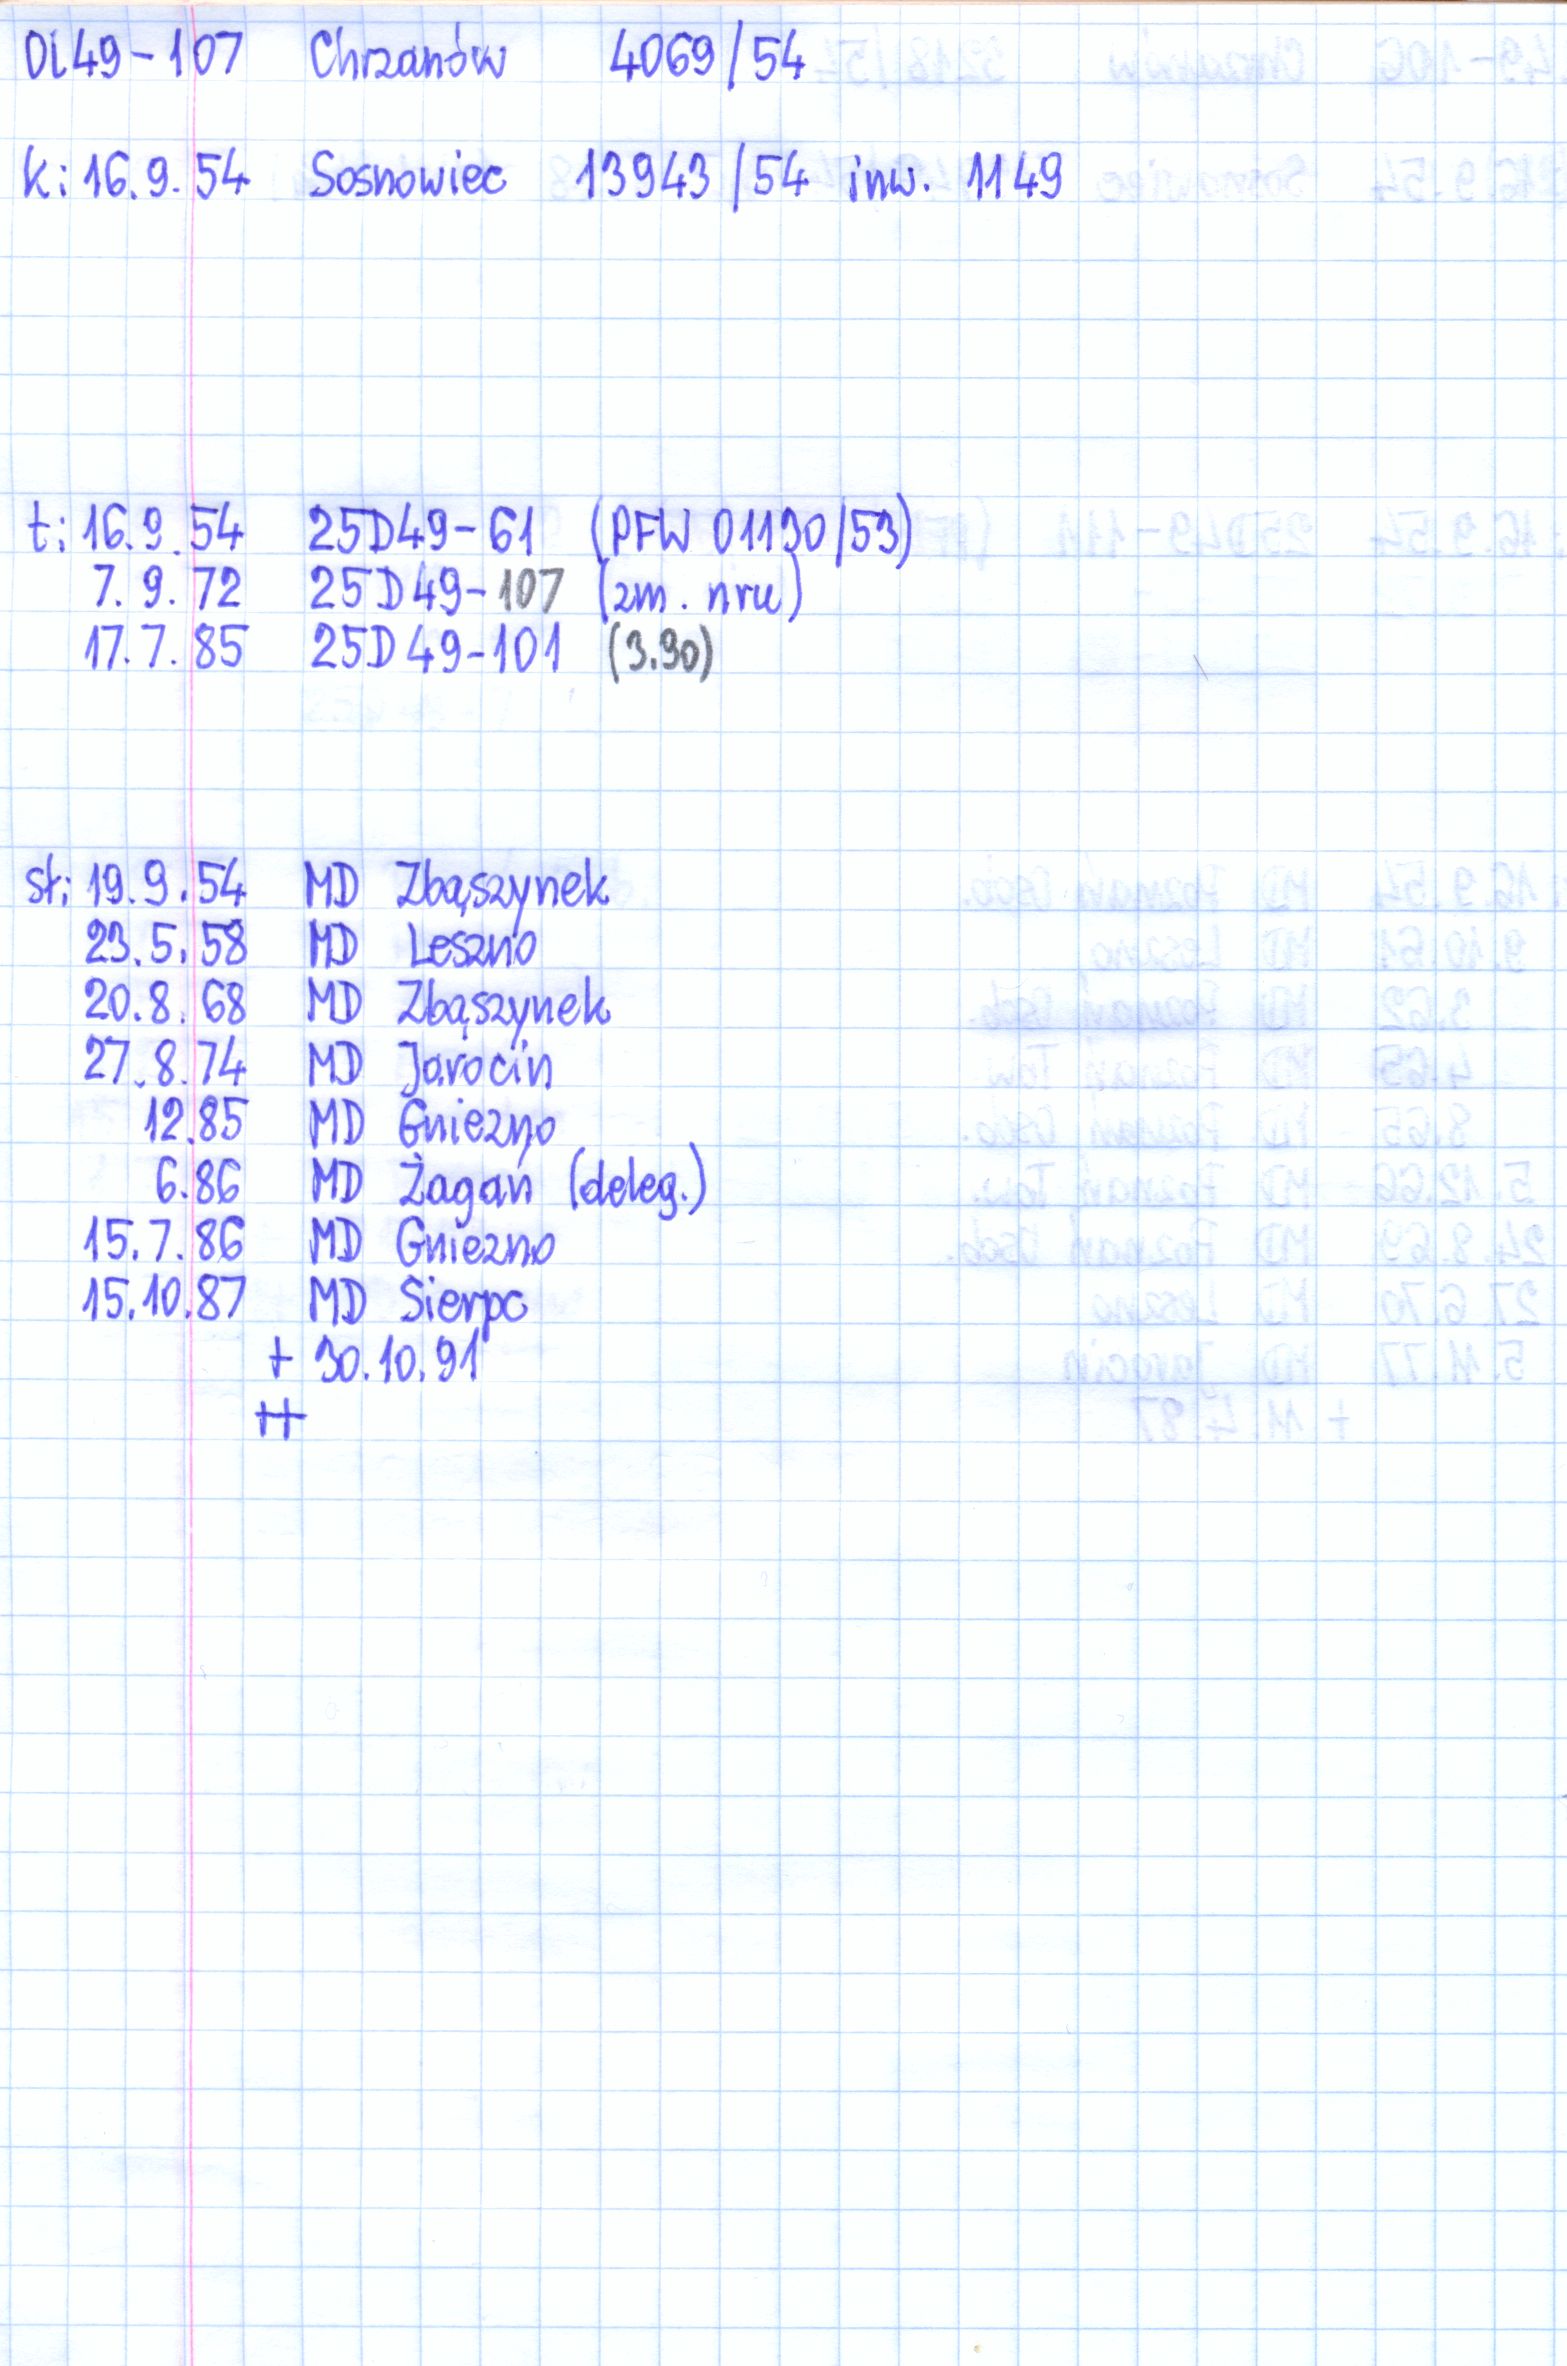 Ol49-107 Chrzanów 4069/54
k: 16.9.54 Sosnowiec 13943/54 inw. 1149
t: 16.9.54 25D49-61 (PFW 01130/53)
7.9.72 25D49-107 (zm. nru)
17.7.85 25D49-101 (3.90)
st: 19.9.54 MD Zbąszynek
23.5.58 MD Leszno
20.8.68 MD Zbąszynek
27.8.74 MD Jarocin
12.85 MD Gniezno
6.86 MD Żagań (deleg.)
15.7.86 MD Gniezno
15.10.87 MD Sierpc
+ 30.10.91
++